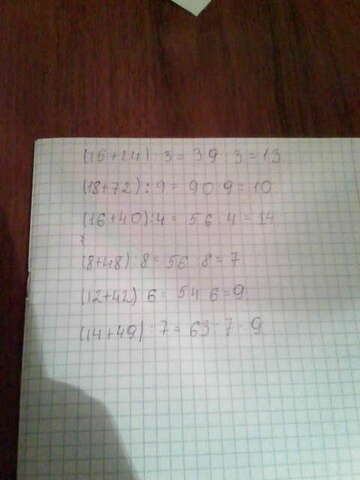 (15+24) : 3 = 39 : 3 = 13
(18+72) : 9 = 90 : 9 = 10
(16+40) : 4 = 56 : 4 = 14
(8+48) : 8 = 56 : 8 = 7
(12+42) 6 = 54 6 = 9
(14+49) : 7 = 63 : 7 = 9